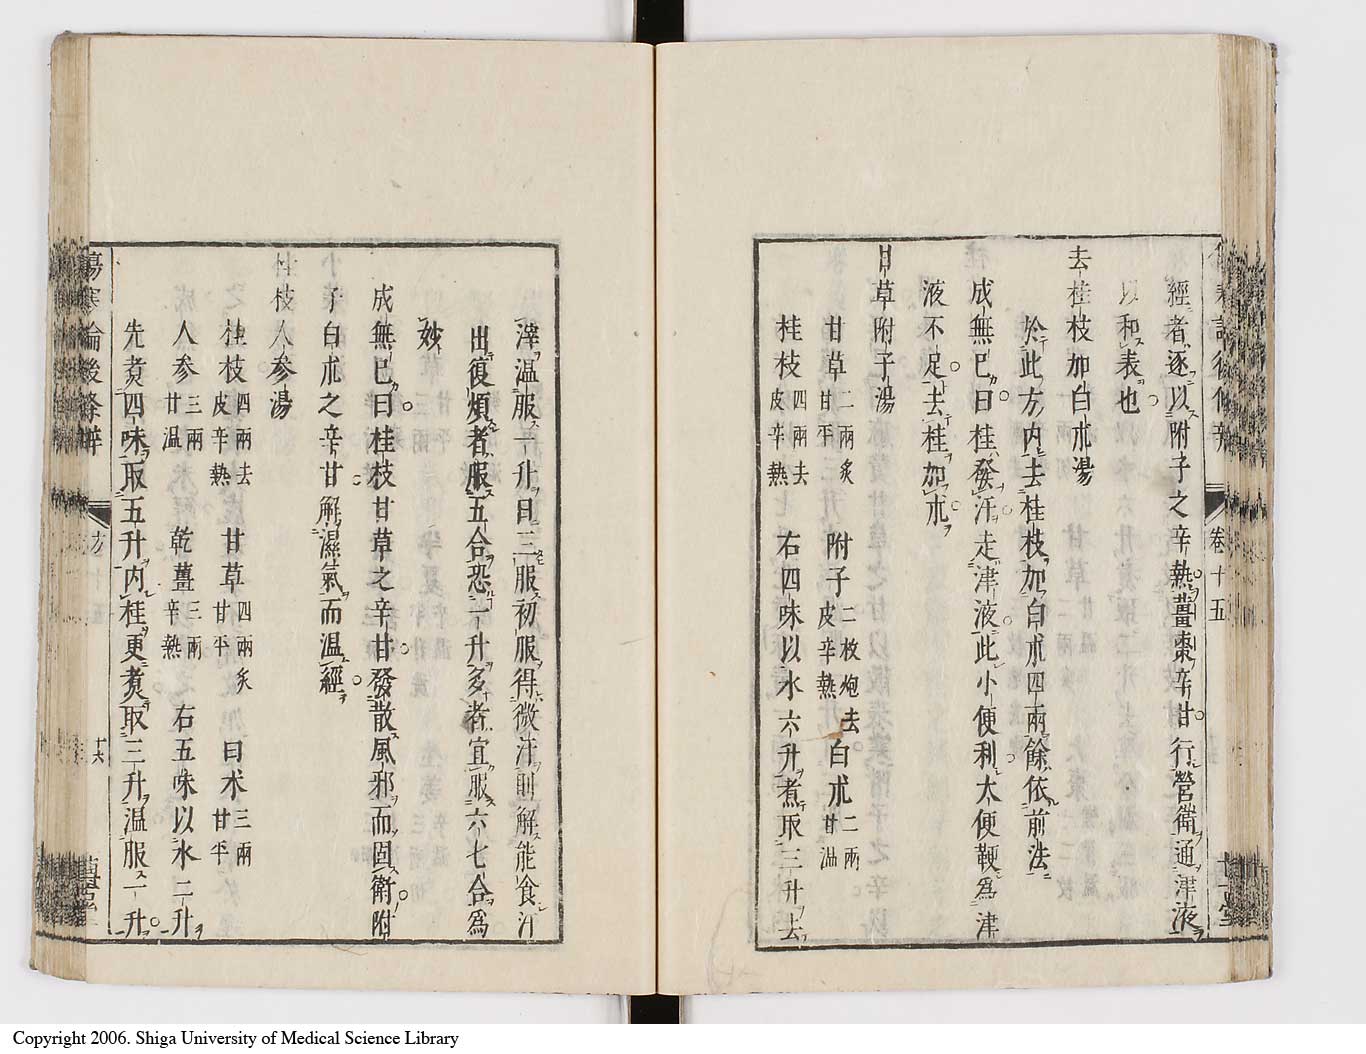 卷十五
經者逐以附子之辛熱薑棗辛甘行營衛通津液
以和表也
去桂枝加白朮湯
於此方內去桂枝加白朮四兩餘依前法
成無已曰桂發汗走津液此小便利大便鞕爲津
液不足去桂加朮
甘草附子湯
甘草二兩炙甘平 附子二枚炮去皮辛熱 白朮二兩甘温
桂枝四兩去皮辛熱 右四味以水六升煮取三升去
滓温服一升日三服初服得微汗則解能食汗
出復煩者服五合恐一升多者宜服六七合爲
妙
成無已曰桂枝甘草之辛甘發散風邪而固衛附
子白朮之辛甘解濕氣而温經
桂枝人參湯
桂枝四兩去皮辛熱 甘草四兩炙甘平 白朮三兩甘平
人参三兩甘温 乾薑三兩辛熱 右五味以水二升
先煮四味取五升内桂更煮取三升温服一升
傷寒論後條辨 十六
Copyright 2006. Shiga University of Medical Science Library